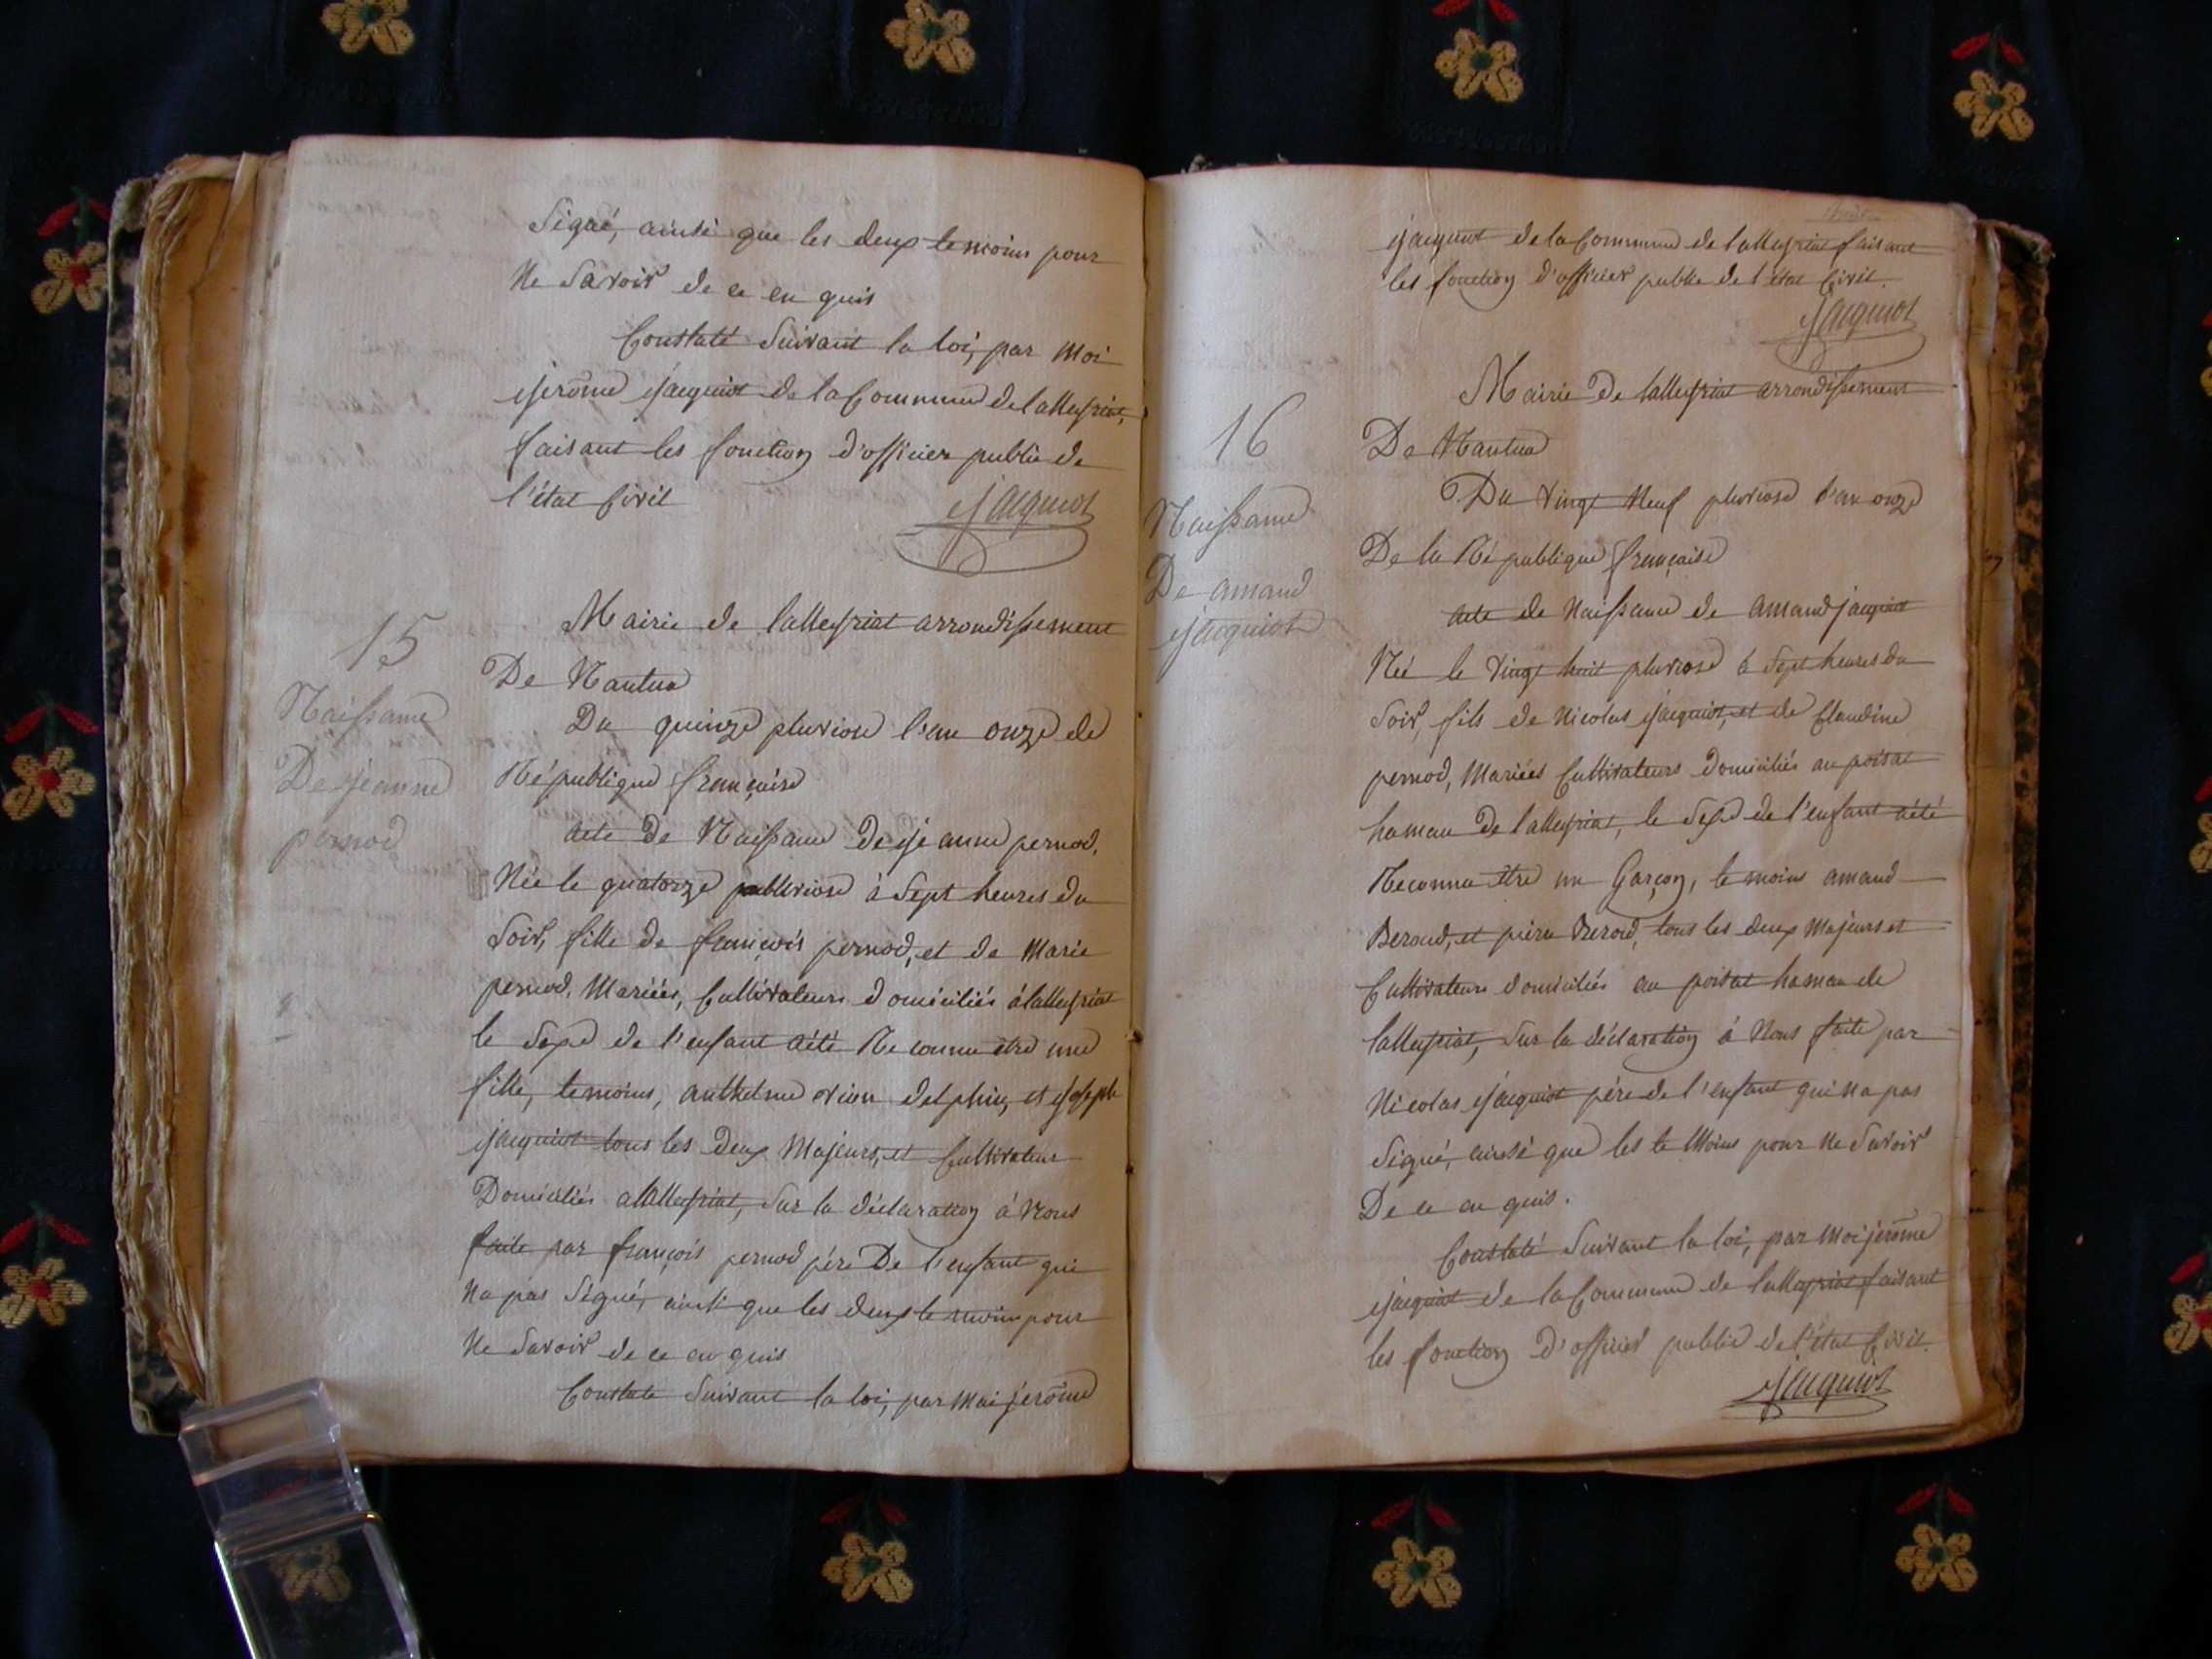 Signé, ainsi que les deux temoins pour
Ne Savoir de ce en quis
Constaté Suivant la loi, par Moi
jerome jacquiot de la Commune de lalleyriat,
faisant les fonction d'officier public de
l'état Civil
jacquiot
15
Naissance
De jeanne
pernod
Mairie de lalleyriat arrondissement
De Nantua
Du quinze pluviose l'an onze de
République françaisse
Acte De Naissance De jeanne pernod,
Née le quatorze pluviose à Sept heures du
Soir, fille de françois pernod, et de Marie
pernod, Mariées, Cultivateurs domiciliés à lalleyriat
le Sexe de l'enfant àété Reconnu être une
fille, temoins, anthelme delphin, et joseph
jacquiot tous les deux Majeurs, et Cultivateur
Domiciliés a lalleyriat, Sur la déclaration à Nous
faite par françois pernod père De l'enfant qui
Na pas Signé, ainsi que les deux temoins pour
Ne Savoir de ce en quis
Constate Suivant la loi, par Moi jerôme
jacquiot de la Commune de lalleyriat faisant
les fonction d'officier public de l'état Civil.
jacquiot
16
Naissance
De amand
jacquiot
Mairie De lalleyriat arrondissement
De Nantua
Du vingt Neuf pluviose l'an onze
De la République française
Acte de Naissance de amand jacquiot
Né le vingt huit pluviose à Sept heures du
Soir, fils de Nicolas jacquiot, et de Claudine
pernod, Mariées Cultivateurs domiciliés au poisat
hamau de lalleyriat, le Sexe de l'enfant àété
Reconnu être un Garçon, temoins amand
Beroud, et pierre Beroud, tous les deux Majeurs et
Cultivateurs domiciliés au poisat hamau de
lalleyriat, Sur la déclaration à Nous faite par
Nicolas jacquiot père de l'enfant qui Na pas
Signé, ainsi que les te Moins pour Ne Savoir
De ce en quis.
Constaté Suivant la loi, par Moi jerôme
jacquiot de la Commune de lalleyriat faisant
les fonction d'officier public de l'état Civil.
jacquiot